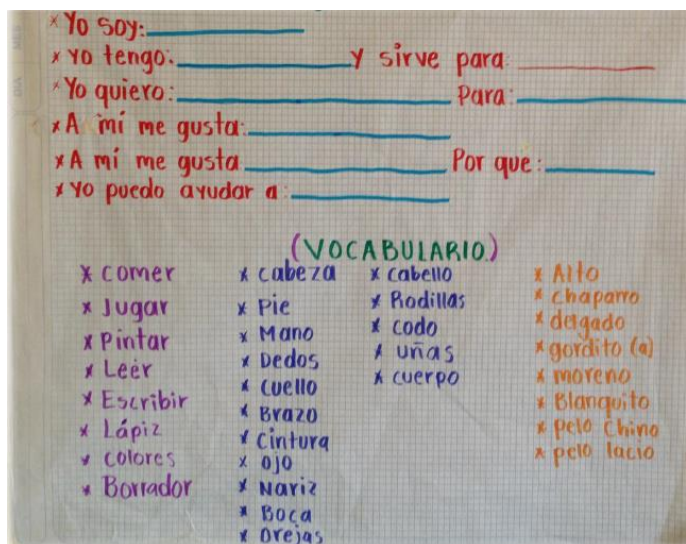 * Yo soy:
* yo tengo: y sirve para:
* Yo quiero: Para:
* A mí me gusta:
* A mí me gusta Por que:
* yo puedo ayudar a:
(VOCABULARIO.)
* comer
* Jugar
* Pintar
* Leer
* Escribir
* Lápiz
* colores
* Borrador
* cabeza
* Pie
* Mano
* Dedos
* cuello
* Brazo
* Cintura
* ojo
* Nariz
* Boca
* Orejas
* cabello
* Rodillas
* codo
* uñas
* cuerpo
* Alto
* chaparro
* delgado
* gordito (a)
* moreno
* Blanquito
* pelo Chino
* pelo lacio